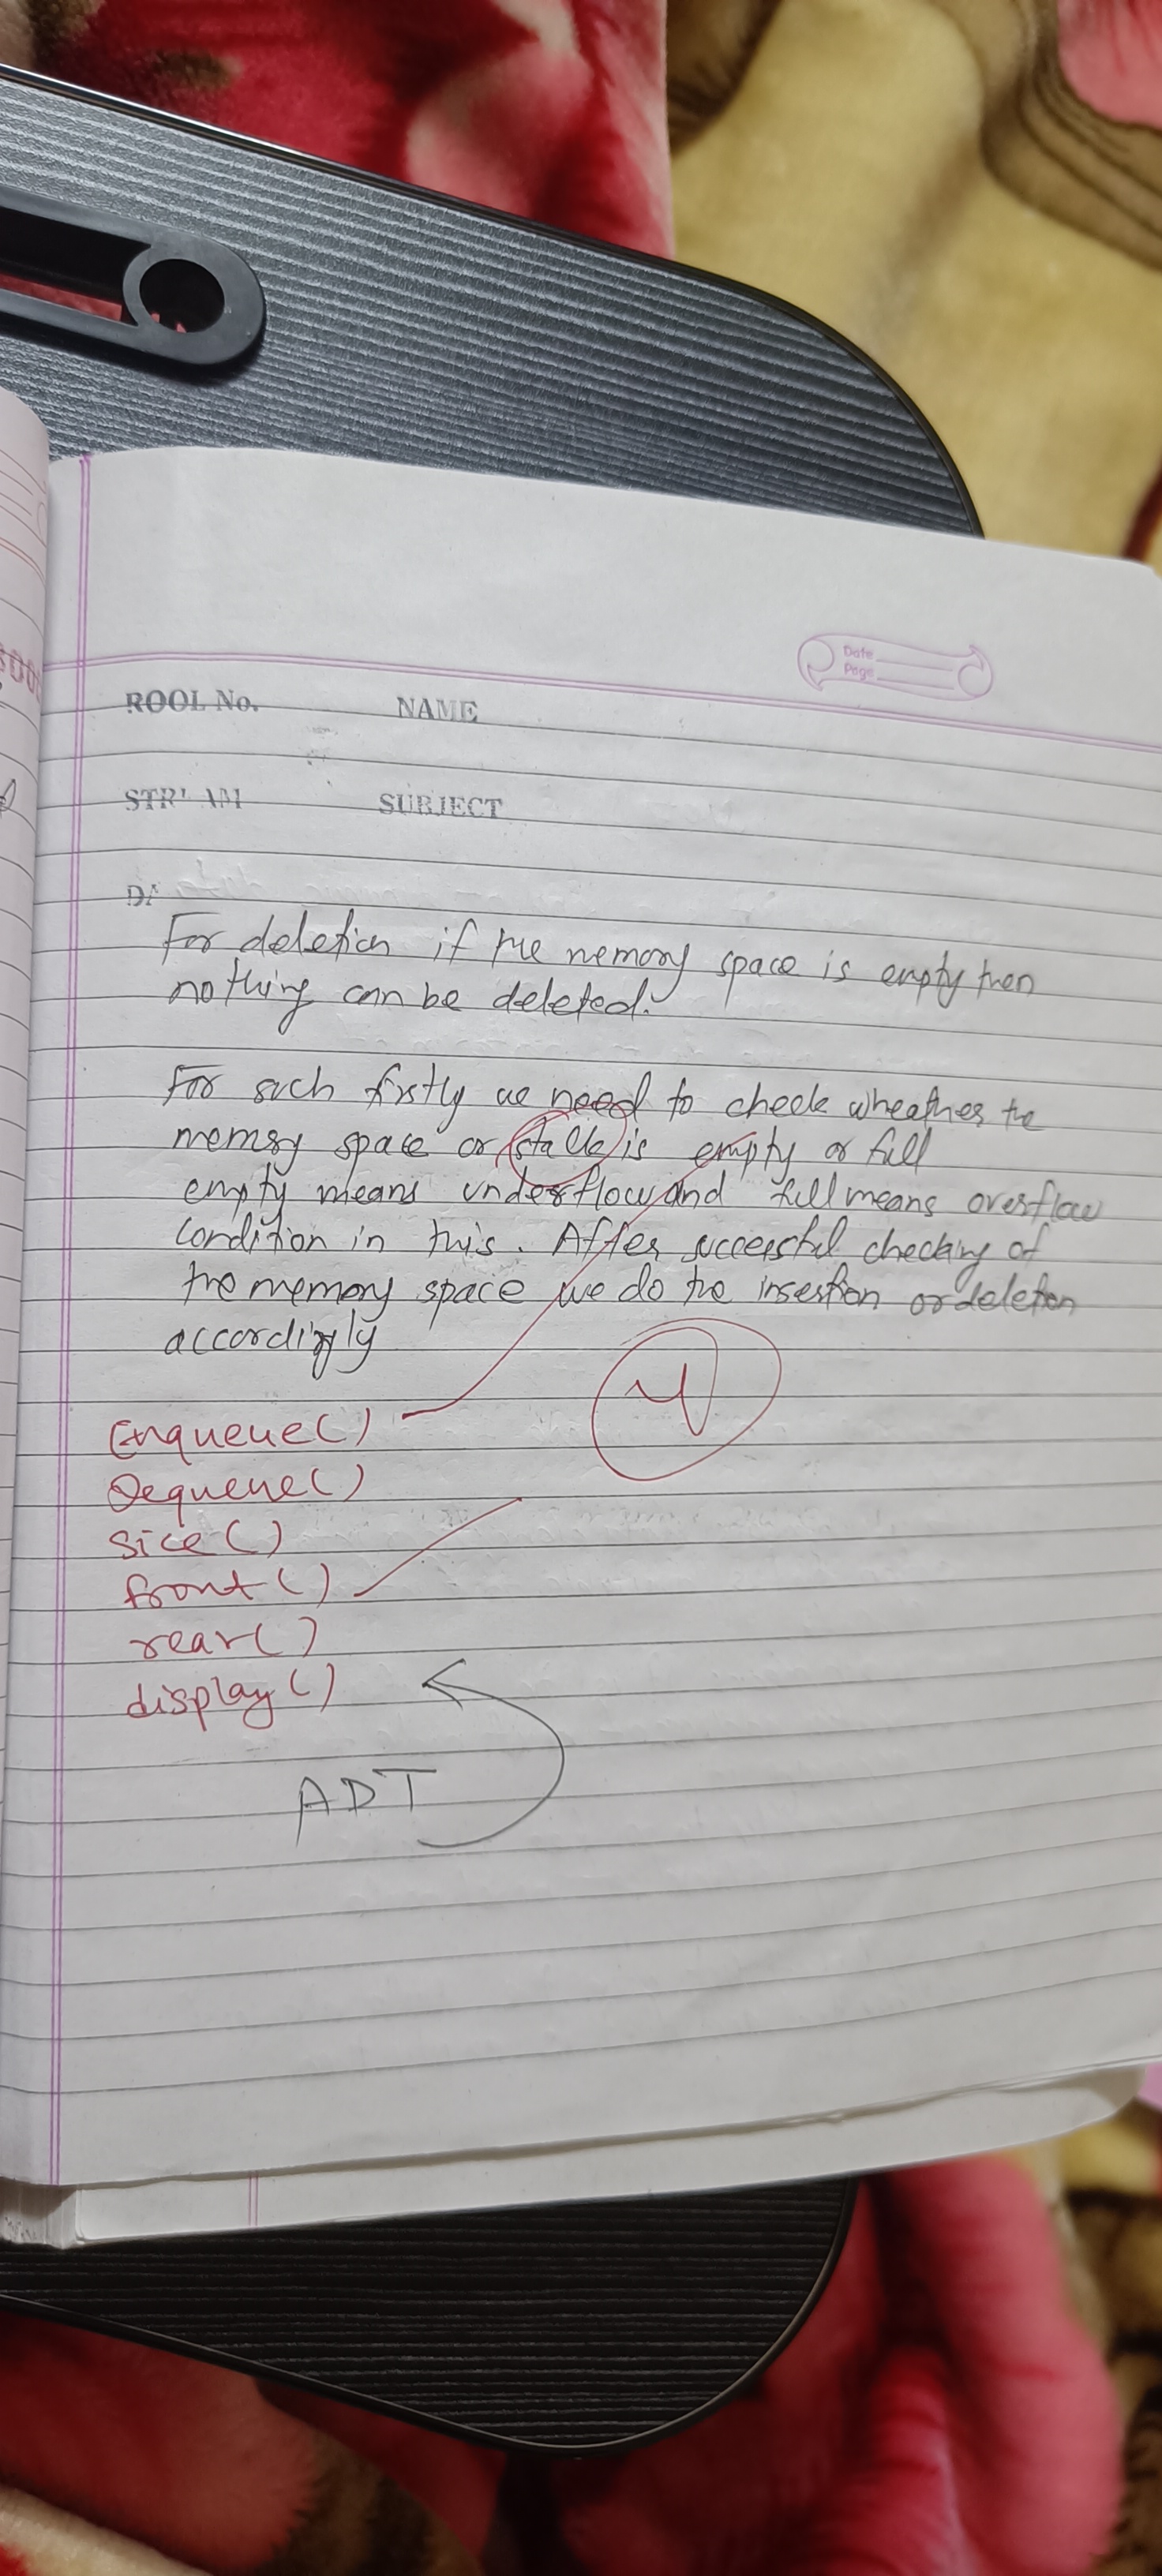 Date
Page
ROOL No. NAME
STR AM SUBJECT
DA
For deletion if the memory space is empty then
nothing can be deleted.
For such firstly we need to check wheather the
memory space or stack is empty or full
empty means underflow and full means overflow
condition in this. After successful checking of
the memory space we do the insertion or deletion
accordingly
4
Enqueue()
Dequeue()
size()
front()
rear()
display()
ADT